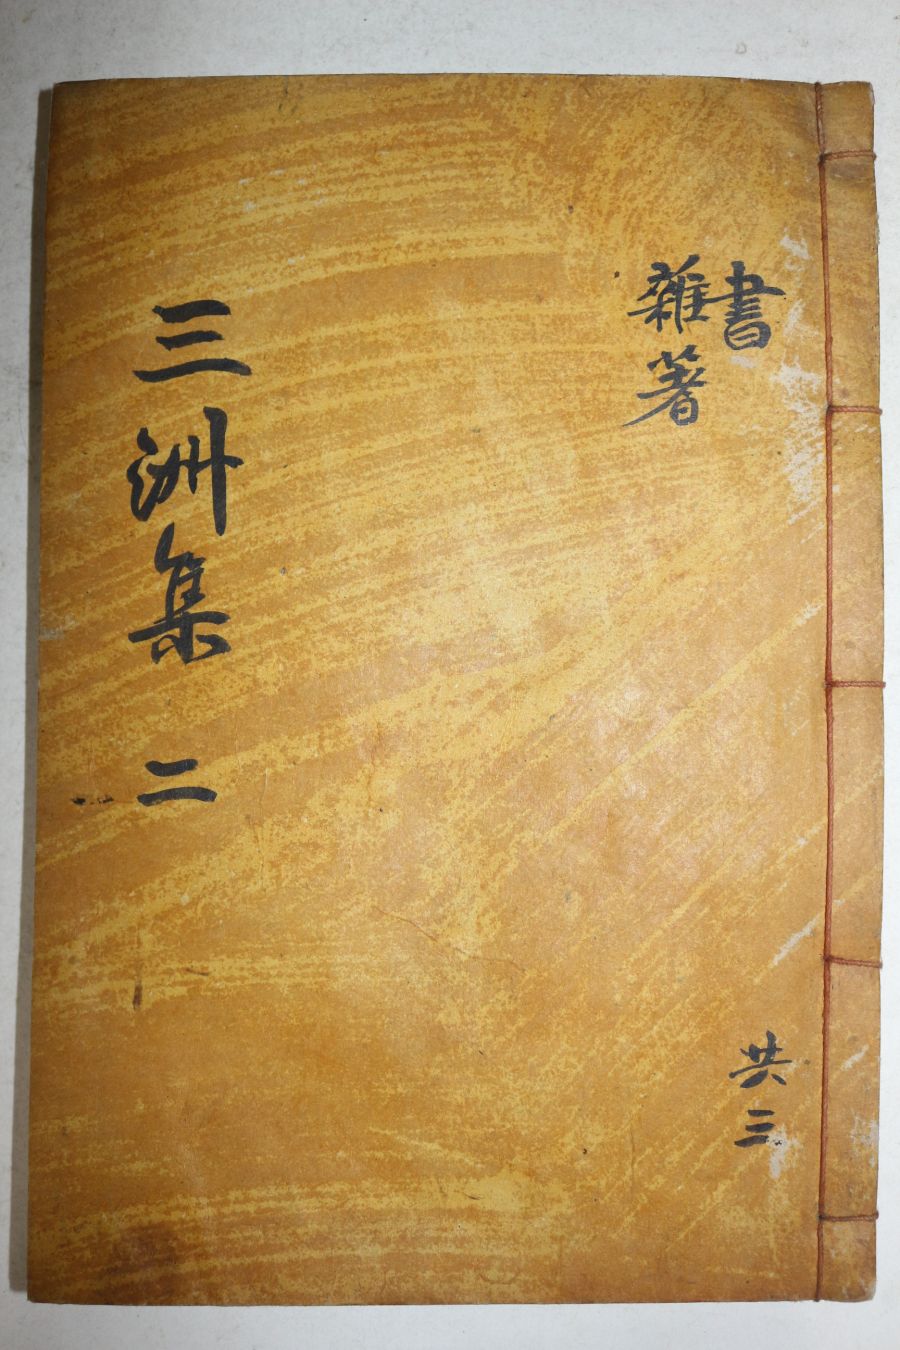 書
雜著
共三
三洲集 二